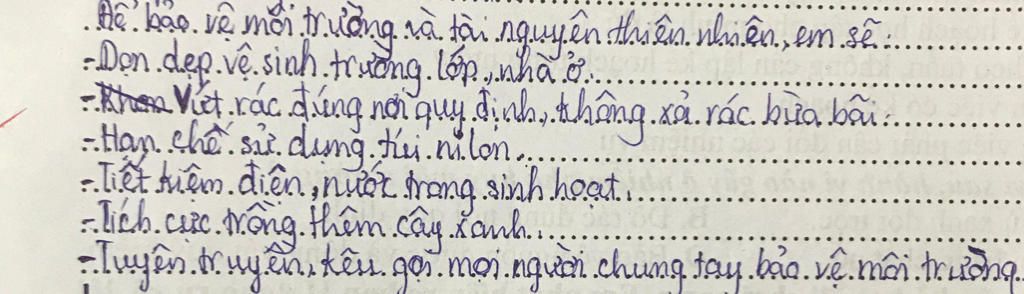 Để bảo vệ môi trường và tài nguyên thiên nhiên, em sẽ:
- Dọn dẹp vệ sinh trường lớp, nhà ở.
- Vứt rác đúng nơi quy định, không xả rác bừa bãi.
- Hạn chế sử dụng túi ni lon.
- Tiết kiệm điện, nước trong sinh hoạt.
- Tích cực trồng thêm cây xanh.
- Tuyên truyền, kêu gọi mọi người chung tay bảo vệ môi trường.